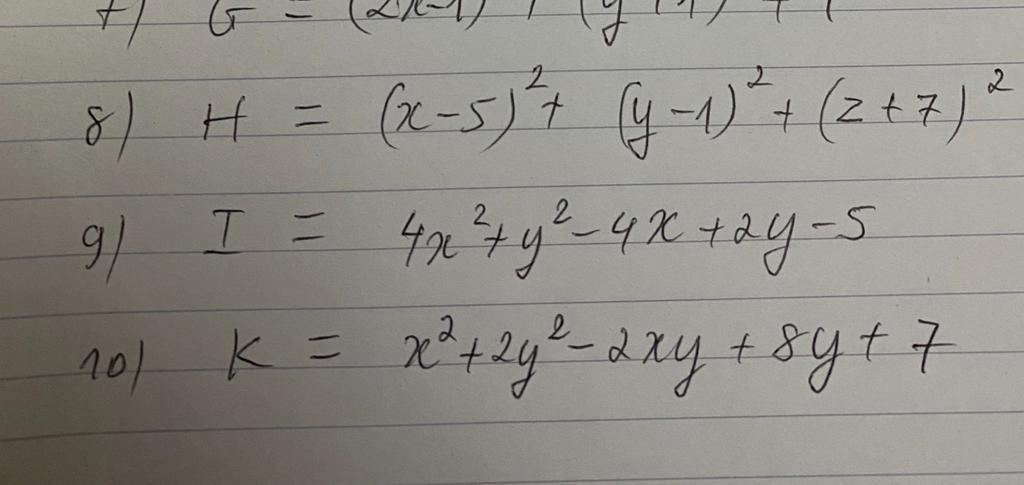 7) G = (2x-1) + (y+1) + 1
8) H = (x-5)² + (y-1)² + (z+7)²
9) I = 4x² + y² - 4x + 2y - 5
10) K = x² + 2y² - 2xy + 8y + 7